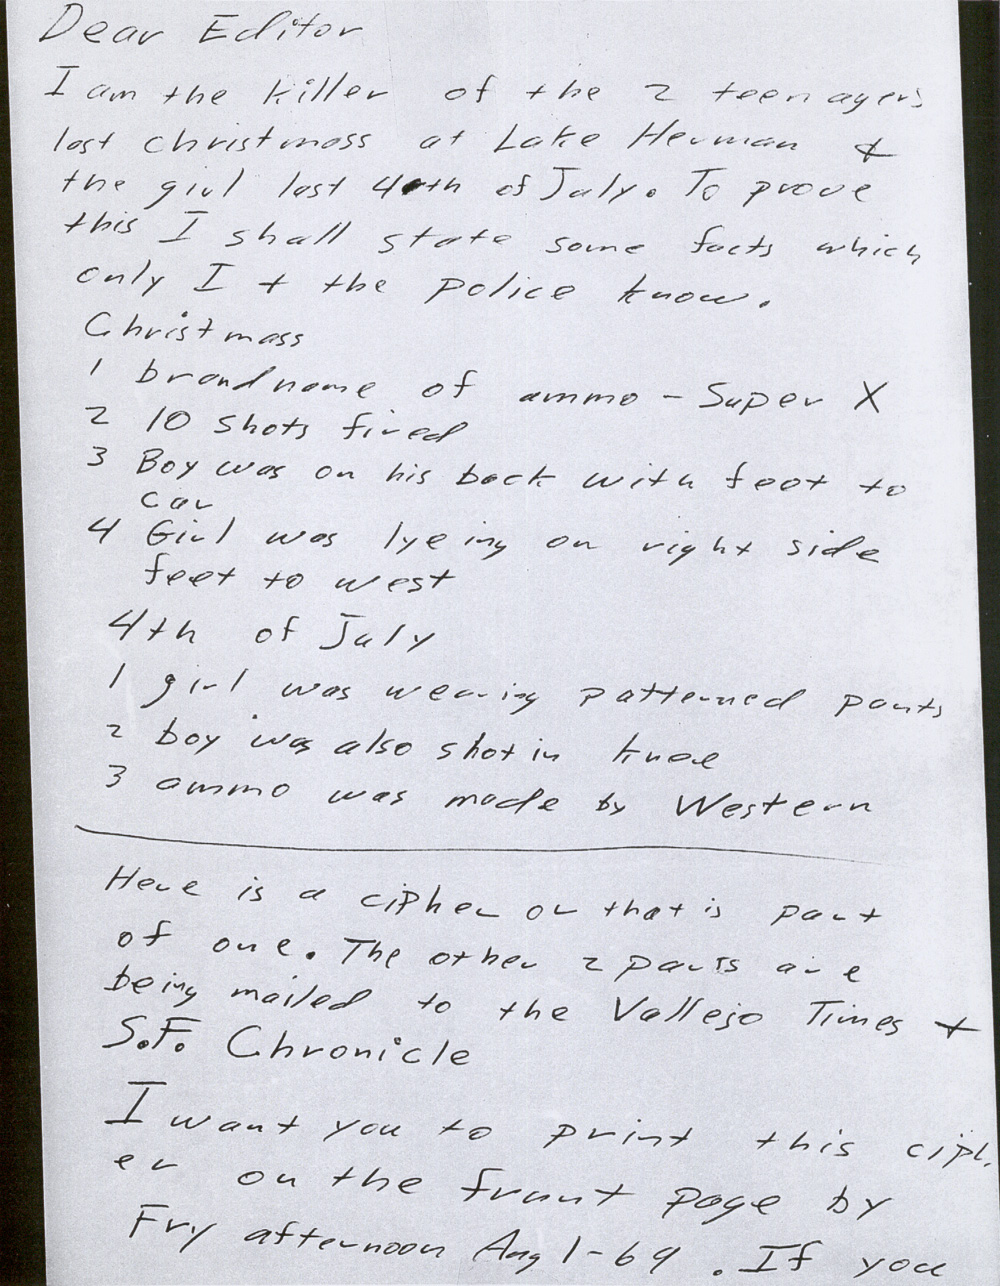 Dear Editor
I am the killer of the 2 teenagers
last christmass at Lake Herman &
the girl last 4th of July. To prove
this I shall state some facts which
only I + the police know.
Christmass
1 brand name of ammo - Super X
2 10 shots fired
3 Boy was on his back with feet to
car
4 Girl was lyeing on right side
feet to west
4th of July
1 girl was wearing patterned pants
2 boy was also shot in knee
3 ammo was made by Western
Here is a cipher or that is part
of one. The other 2 parts are
being mailed to the Vallejo Times +
S.F. Chronicle
I want you to print this ciph
er on the frunt page by
Fry afternoon Aug 1-69. If you